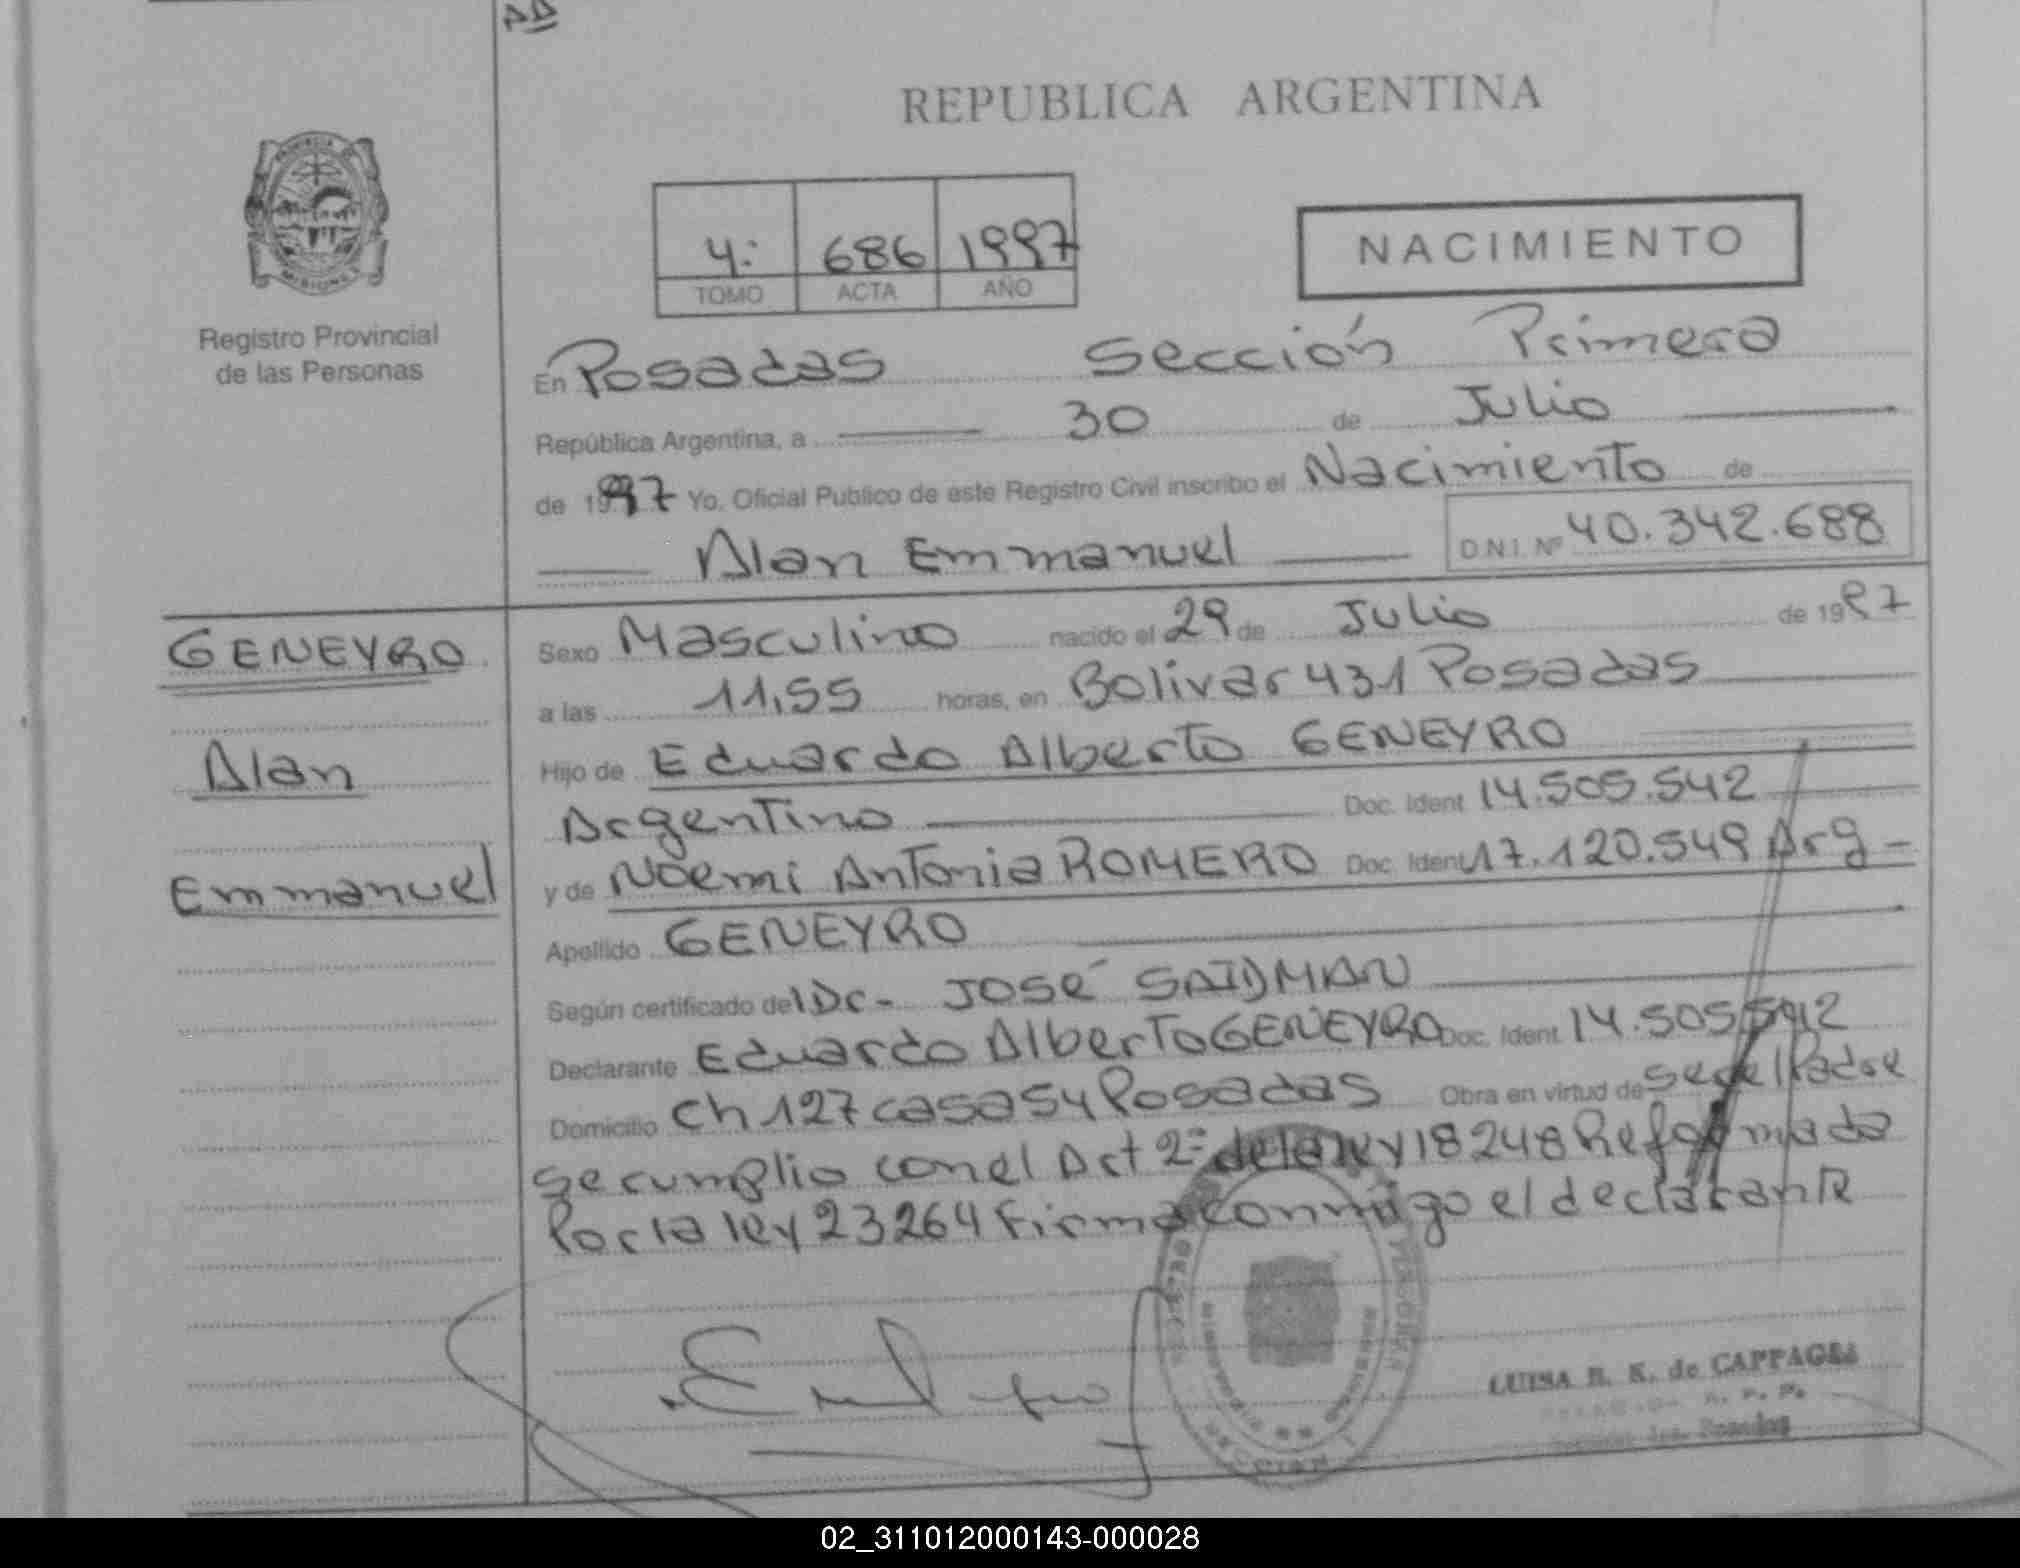 REPUBLICA ARGENTINA
PROVINCIA DE MISIONES
Registro Provincial
de las Personas
4: 686 1997
TOMO ACTA AÑO
NACIMIENTO
En Posadas Sección Primera
República Argentina, a 30 de Julio
de 1997 Yo. Oficial Publico de este Registro Civil inscribo el Nacimiento de
Alan Emmanuel D.N.I. Nº 40.342.688
GENEYRO
Alan
Emmanuel
Sexo Masculino nacido el 29 de Julio de 1997
a las 11,55 horas, en Bolivar 431 Posadas
Hijo de Eduardo Alberto GENEYRO
Argentino Doc. Ident 14.505.542
y de Noemi Antonia ROMERO Doc. Ident 17.120.549 Arg -
Apellido GENEYRO
Según certificado del Dr. JOSÉ SAIDMAN
Declarante Eduardo Alberto GENEYRO Doc. Ident 14.505.542
Domicilio Ch 127 casa 54 Posadas Obra en virtud de ser el Padre
se cumplio con el Art 2º de la ley 18248 Reformada
Por la ley 23264 Firma conmigo el declarante
LUISA R. K. de
02_311012000143-000028